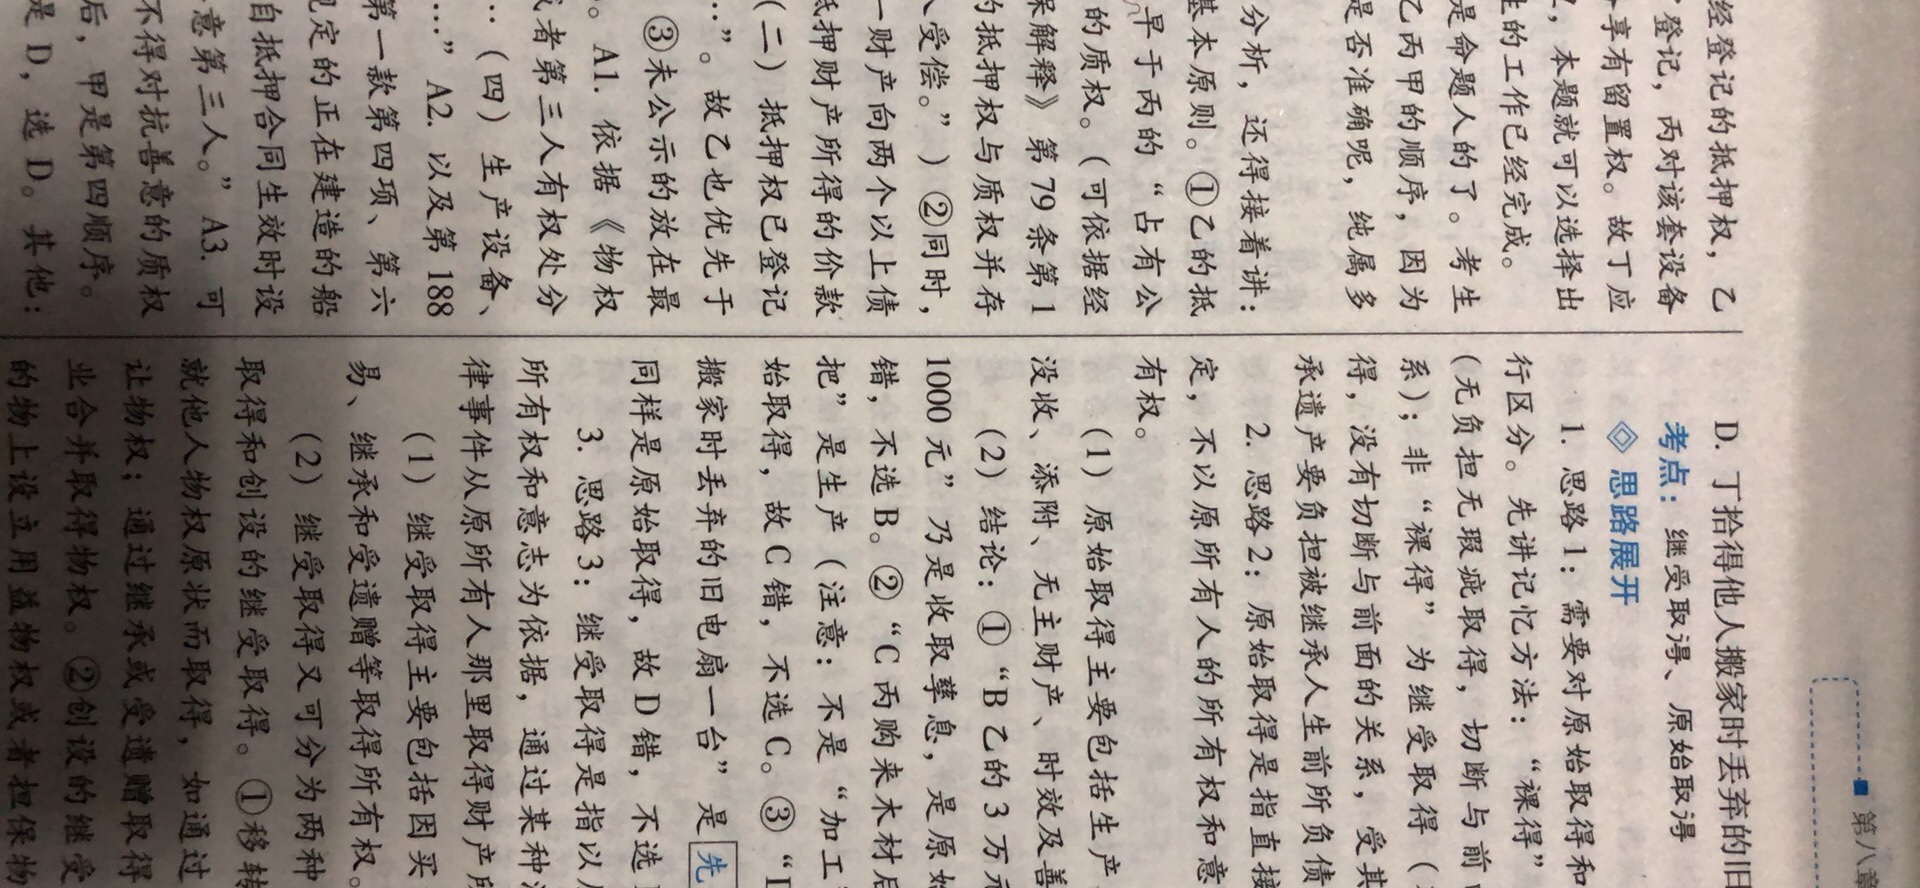 第八章
经登记的抵押权，乙
登记，丙对该套设备
享有留置权。故丁应
，本题就可以选择出
的工作已经完成。
是命题人的了。考生
乙丙甲的顺序，因为
是否准确呢，纯属多
分析，还得接着讲：
基本原则。①乙的抵
早于丙的“占有公
的质权。（可依据经
保解释》第79条第1
的抵押权与质权并存
受偿。”）②同时，
一财产向两个以上债
抵押财产所得的价款
（二）抵押权已登记
…”。故乙也优先于
③未公示的放在最
。A1. 依据《物权
者第三人有权处分
…（四）生产设备、
…”A2. 以及第188
第一款第四项、第六
规定的正在建造的船
自抵押合同生效时设
意第三人。”A3. 可
不得对抗善意的质权
后，甲是第四顺序。
是D，选D。其他：
D. 丁拾得他人搬家时丢弃的旧
考点：继受取得、原始取得
◇ 思路展开
1. 思路1：需要对原始取得和
行区分。先讲记忆方法：“裸得”
（无负担无瑕疵取得，切断与前
系）；非“裸得”为继受取得（
得，没有切断与前面的关系，受其
承遗产要负担被继承人生前所负债
2. 思路2：原始取得是指直接
定，不以原所有人的所有权和意
有权。
（1）原始取得主要包括生产
没收、添附、无主财产、时效及善
（2）结论：①“B乙的3万元
1000元”乃是收取孳息，是原始
错，不选B。②“C丙购来木材后
把”是生产（注意：不是“加工
始取得，故C错，不选C。③“
搬家时丢弃的旧电扇一台”是先
同样是原始取得，故D错，不选
3. 思路3：继受取得是指以
所有权和意志为依据，通过某种
律事件从原所有人那里取得财产所
（1）继受取得主要包括因买
易、继承和受遗赠等取得所有权。
（2）继受取得又可分为两种
取得和创设的继受取得。①移转
就他人物权原状而取得，如通过
让物权；通过继承或受遗赠取得
业合并取得物权。②创设的继受
的物上设立用益物权或者担保物